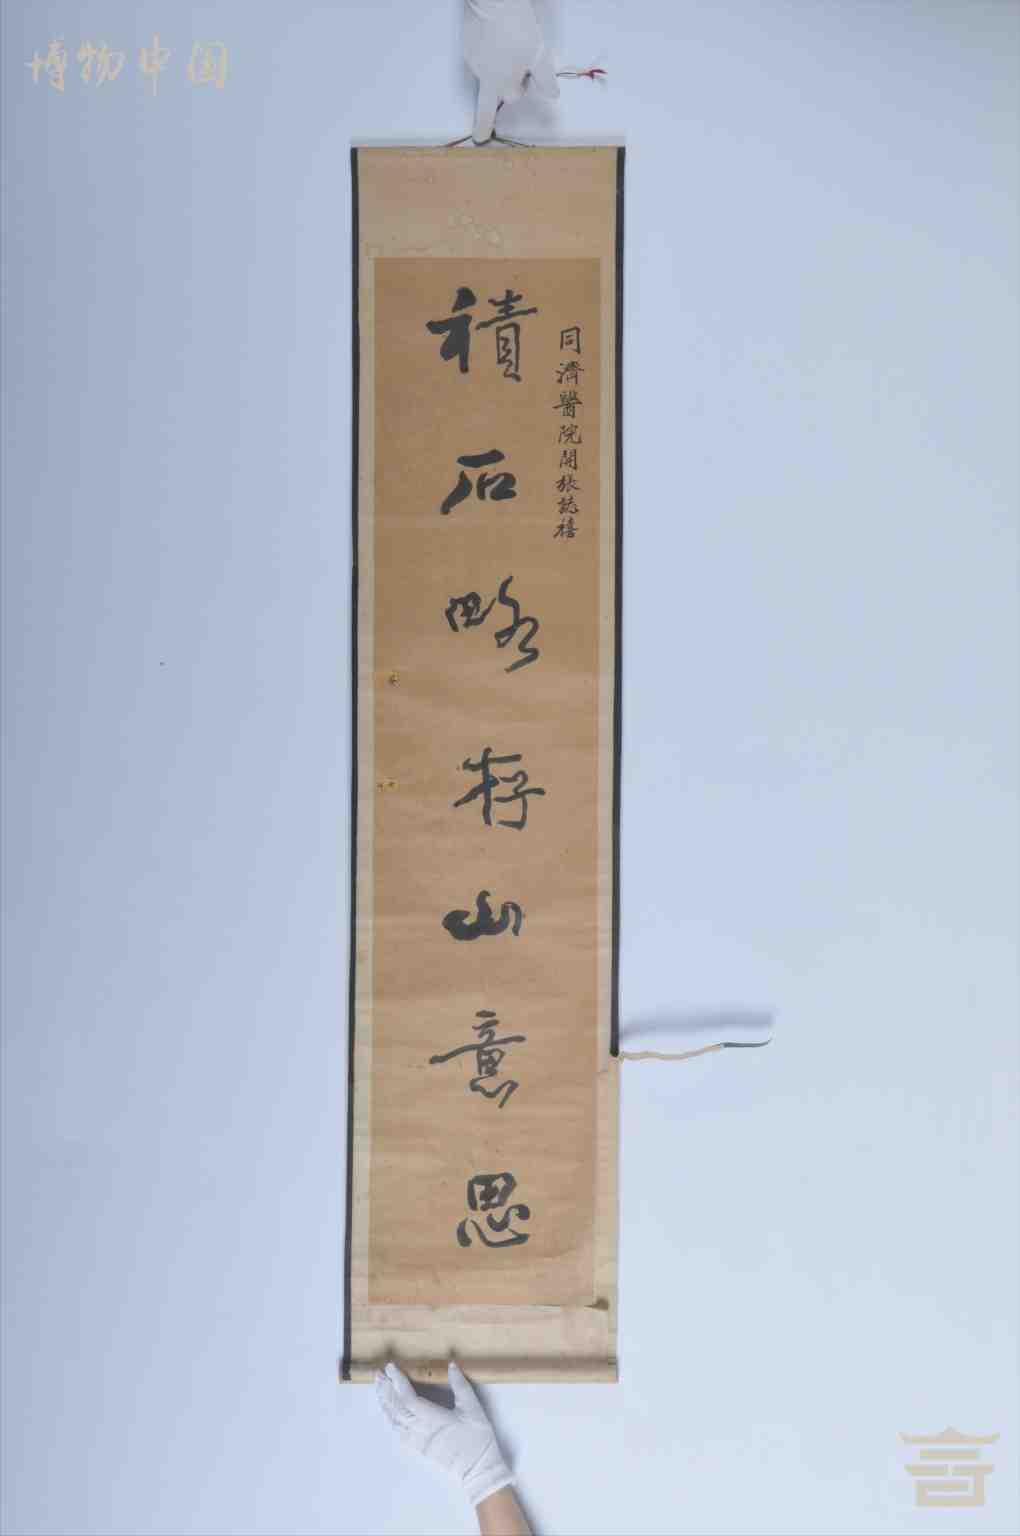 博物中国
同濟醫院開張誌禧
積石略存山意思